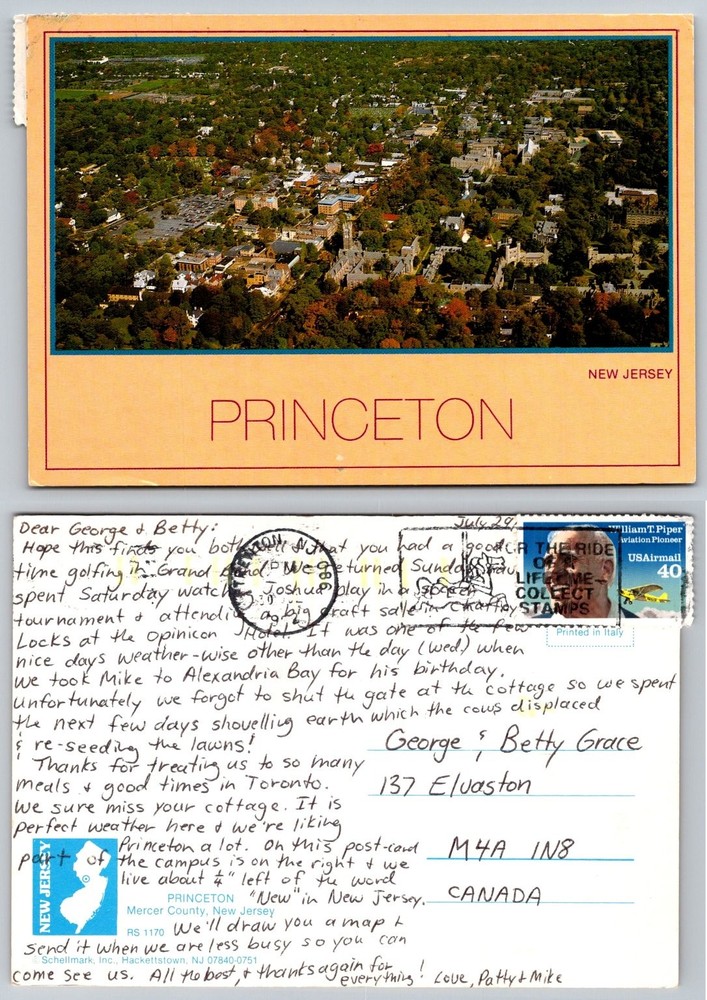 NEW JERSEY
PRINCETON
July 29,
Dear George & Betty:
Hope this finds you both well & that you had a good
time golfing in Grand Bend. We returned Sunday
spent Saturday watching Joshua play in a soccer
tournament & attending a big craft sale in Chaffey
Locks at the Opinicon Hotel. It was one of the few
nice days weather-wise other than the day (wed) when
we took Mike to Alexandria Bay for his birthday.
Unfortunately we forgot to shut the gate at the cottage so we spent
the next few days shovelling earth which the cows displaced
& re-seeding the lawns!
Thanks for treating us to so many
meals & good times in Toronto.
We sure miss your cottage. It is
perfect weather here & we're liking
Princeton a lot. On this post-card
part of the campus is on the right & we
live about ¼" left of the word
"New" in New Jersey.
We'll draw you a map &
send it when we are less busy so you can
come see us. All the best, & thanks again for
everything! Love, Patty & Mike
TRENTON, N
PM
086
FOR THE RIDE
OF A
LIFETIME—
COLLECT
STAMPS
William T. Piper
Aviation Pioneer
USAirmail
40
Printed in Italy
George & Betty Grace
137 Elvaston
M4A 1N8
CANADA
NEW JERSEY
PRINCETON
Mercer County, New Jersey
RS 1170
Schellmark, Inc., Hackettstown, NJ 07840-0751